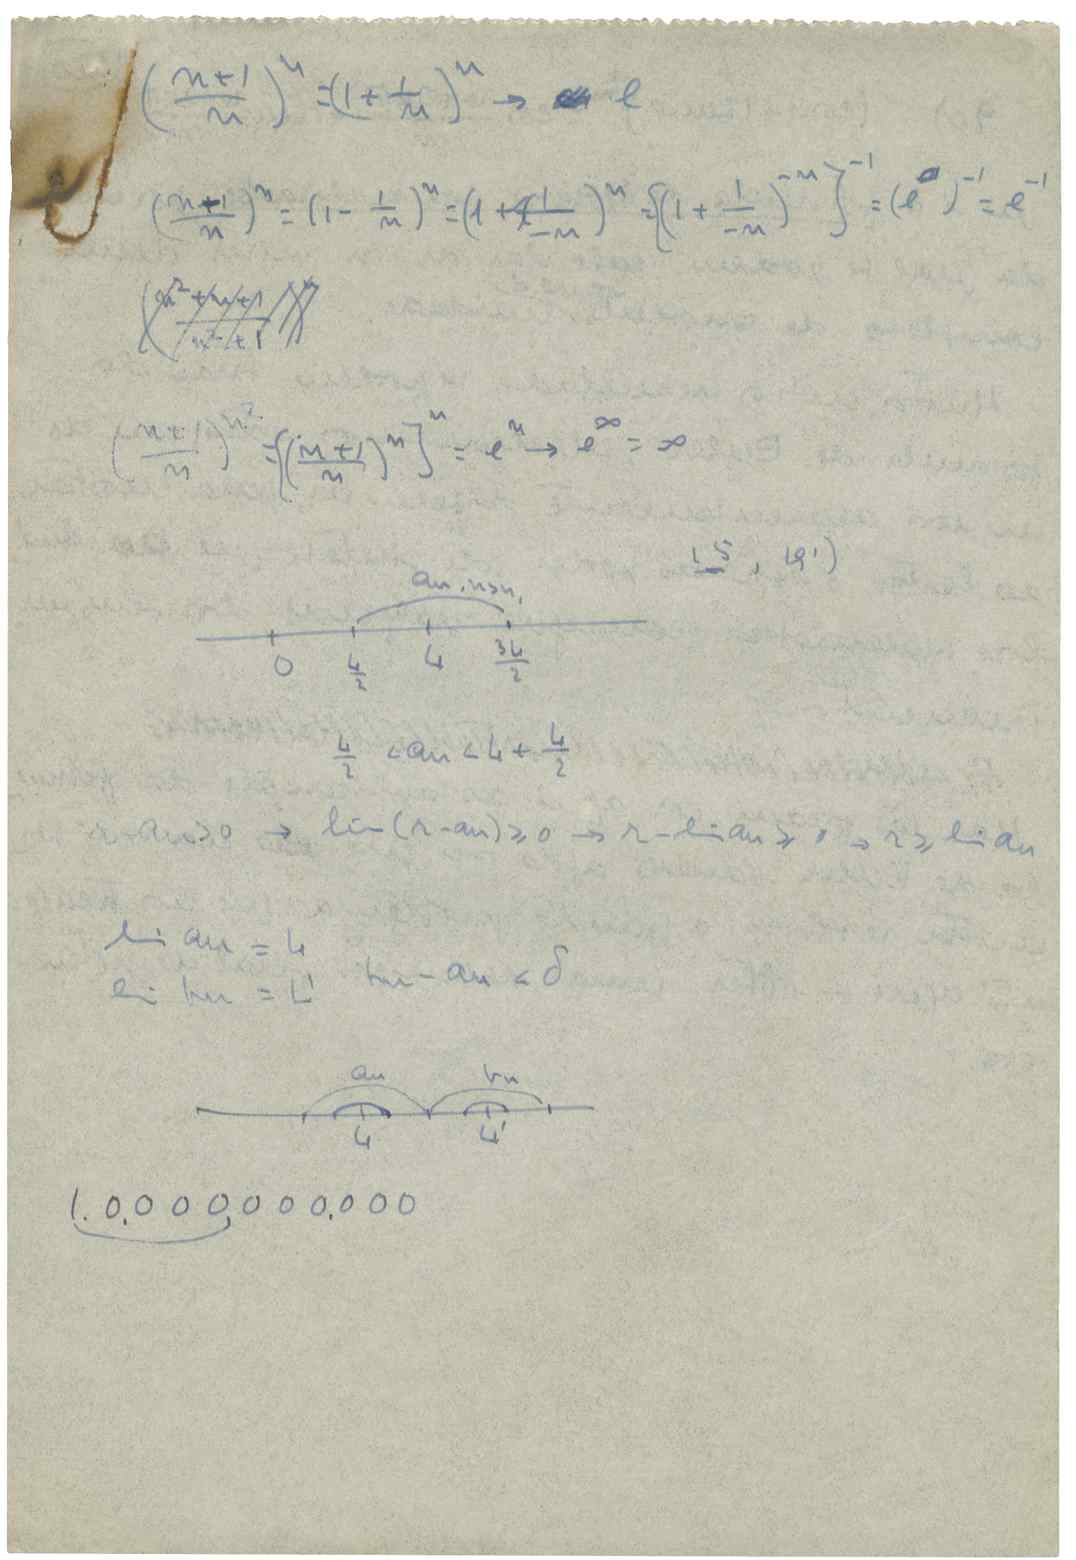 ((n+1)/n)^n = (1 + 1/n)^n → e
((n-1)/n)^n = (1 - 1/n)^n = (1 + 1/-n)^n = {(1 + 1/-n)^-n}^-1 = (e)^-1 = e^-1
((n+1)/n)^n² = {((n+1)/n)^n}^n = e^n → e^∞ = ∞
an, n>n₁
0 L/2 L 3L/2
L/2 < an < L + L/2
r-an>0 → lim(r-an)≥0 → r-lim an≥0 → r≥lim an
lim an = L
lim bn = L'
bn - an < δ
an bn
L L'
1.0.000.000.000